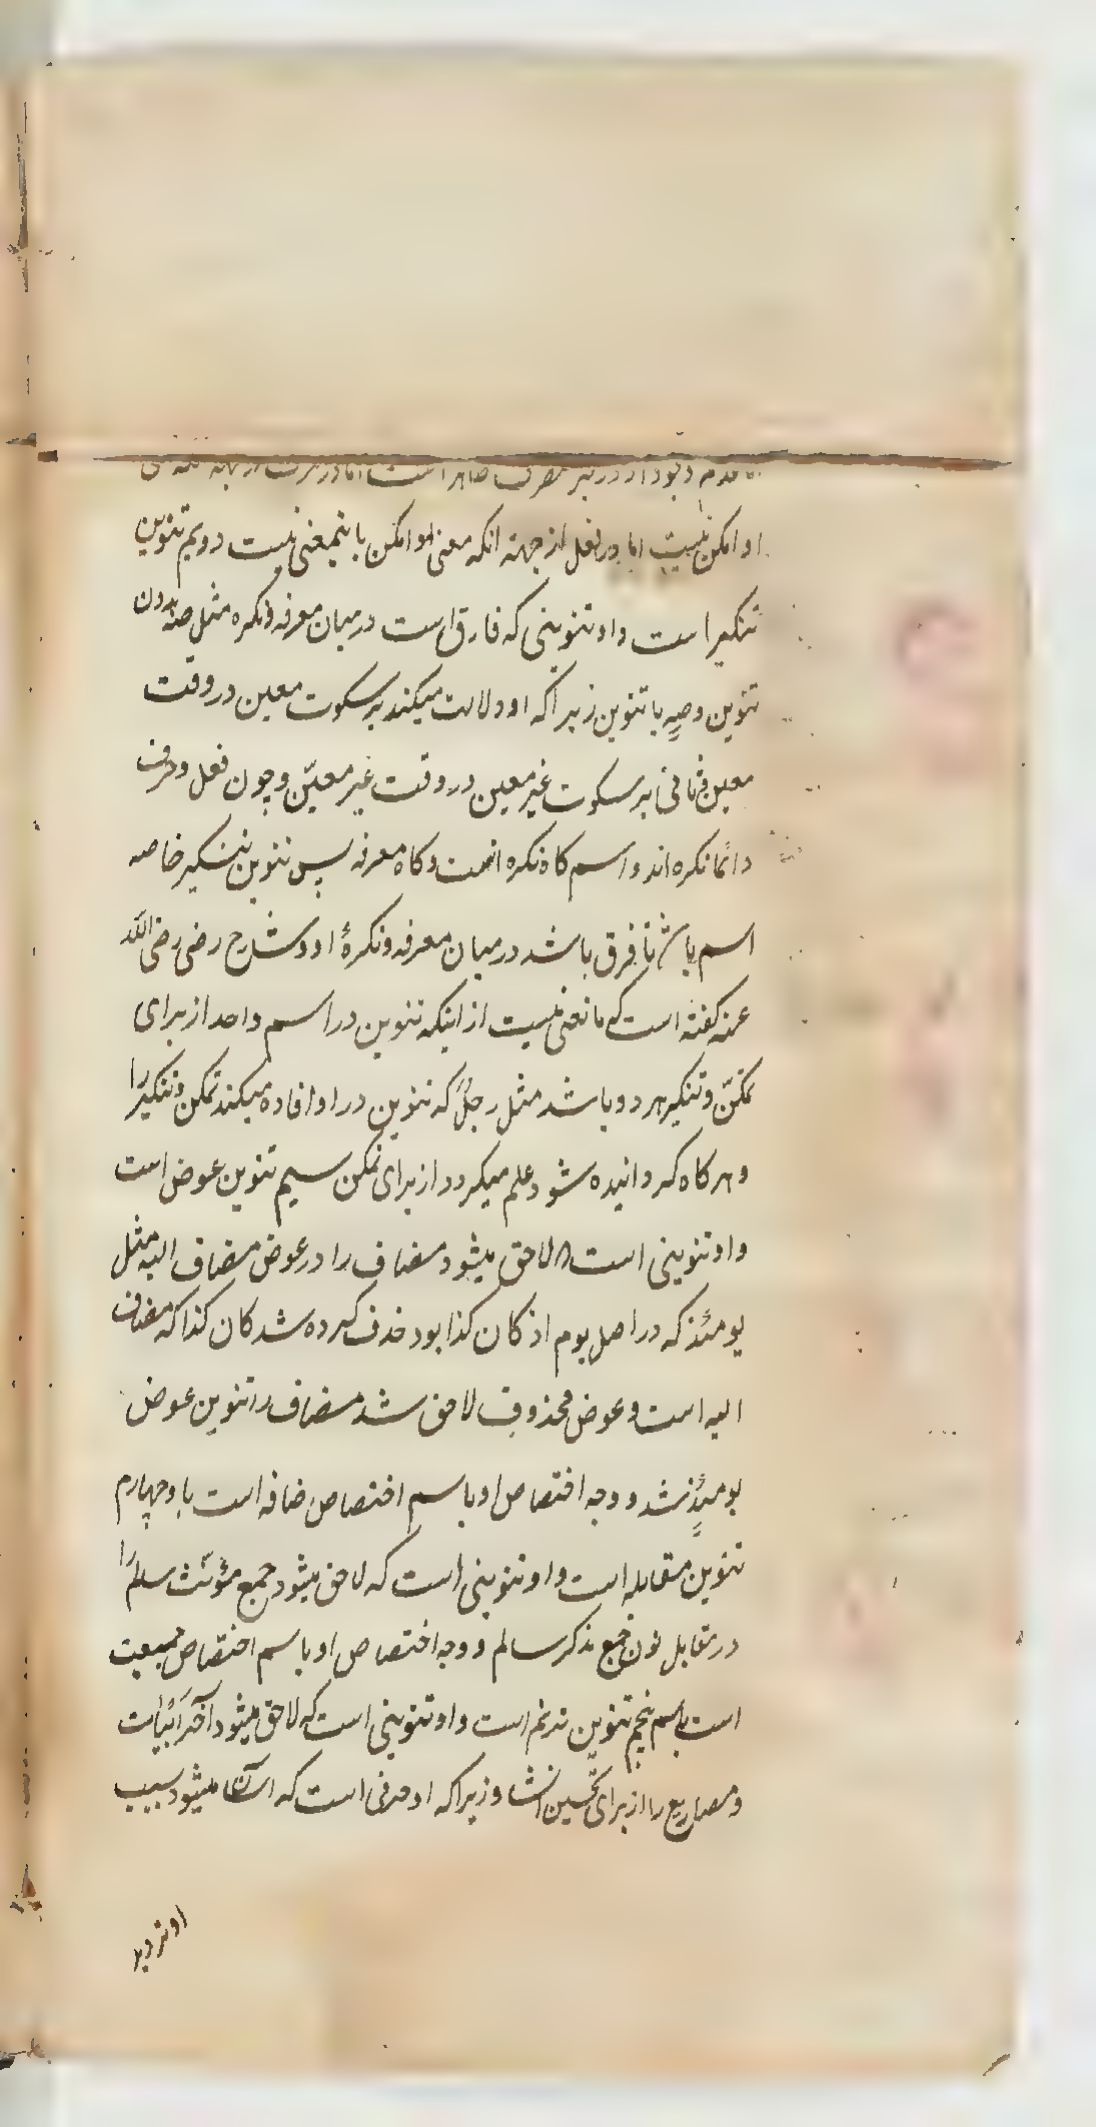 او امکن نیست اما در فعل از جهته انکه معنی او امکن باینمعنی نیست دویم تنوین
تنکیر است و او تنوینی که فارق است در میان معرفه و نکره مثل صه بدون
تنوین وصهٍ با تنوین زیرا که او دلالت میکند بر سکوت معین در وقت
معین و ثانی بر سکوت غیر معین در وقت غیر معیّن و چون فعل و حرف
دائما نکره اند و اسم کاه نکره است و کاه معرفه پس تنوین تنکیر خاصه
اسم باشد تا فرق باشد در میان معرفه و نکرهٔ او و شارح رضی رضی الله
عنه کفته است که مانعی نیست از اینکه تنوین در اسم واحد از برای
تمکّن و تنکیر هر دو باشد مثل رجلٌ که تنوین در او افاده میکند تمکن و تنکیر را
و هر کاه کردانیده شود علم میکردد از برای تمکن سیم تنوین عوض است
و او تنوینی است که لاحق میشود مضاف را در عوض مضاف الیه مثل
یومئذ که در اصل یوم اذ کان کذا بود حذف کرده شد کان کذا که مضاف
الیه است و عوض محذوف لاحق شد مضاف را تنوین عوض
یومئذٍ شد و وجه اختصاص او باسم اختصاص اضافه است باو چهارم
تنوین مقابله است و او تنوینی است که لاحق میشود جمع مؤنث سالم را
در مقابل نون جمع مذکر سالم و وجه اختصاص او باسم اختصاص جمعیت
است باسم پنجم تنوین ترنم است و او تنوینی است که لاحق میشود آخر ابیات
و مصاریع را از برای تحسین انشاد زیرا که او حرفی است که میشود بسبب